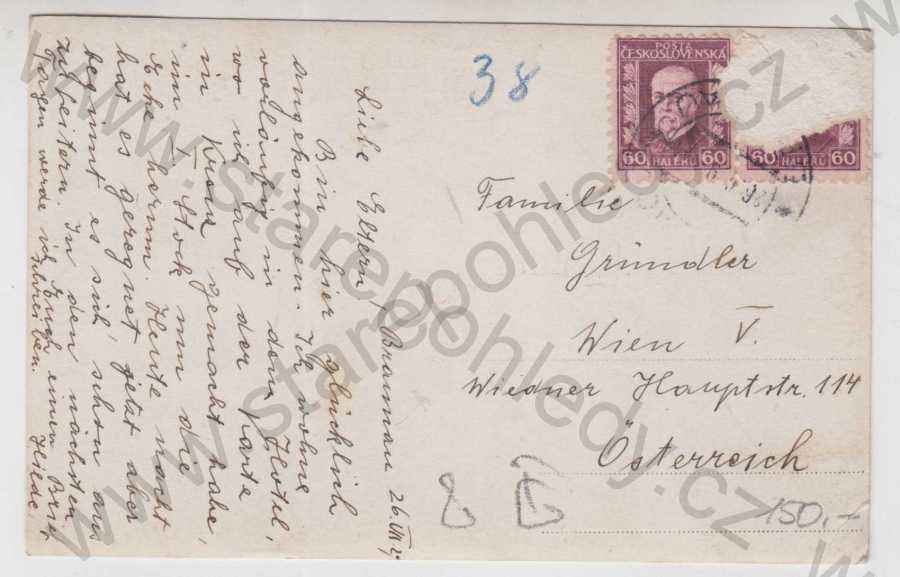 38
POSTA
ČESKOSLOVENSKÁ
60 HALÉŘŮ 60
60 HALÉŘŮ 60
Familie
Gründler
Wien V.
Wiedner Hauptstr. 114
Österreich
150,-
Braunau 26.VII.29
Liebe Eltern!
Bin hier glücklich
angekommen. Ich wohne
vorläufig in dem Hotel,
wo ich auf der Karte
ein Kreuz gemacht habe,
im I. Stock um die
Ecke herum. Heute nacht
hat es geregnet, jetzt aber
beginnt es sich schon aus
zuheitern. In den nächsten
Tagen werde ich Euch einen Brief
schreiben. Heide.
www.starepohledy.cz